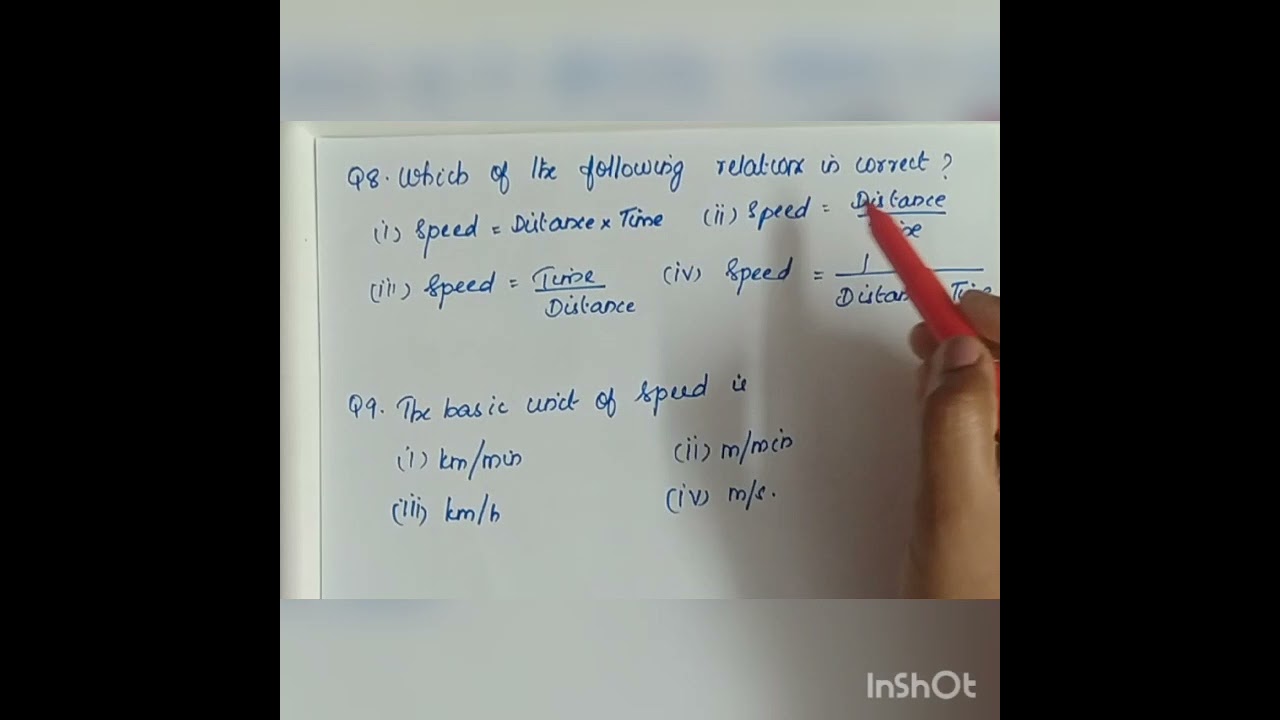 Q8. Which of the following relations is correct?
(i) Speed = Distance × Time (ii) Speed = Distance
(iii) Speed = Time / Distance (iv) Speed = 1 / Distance Time
Q9. The basic unit of speed is
(i) km/min (ii) m/min
(iii) km/h (iv) m/s.
InShOt